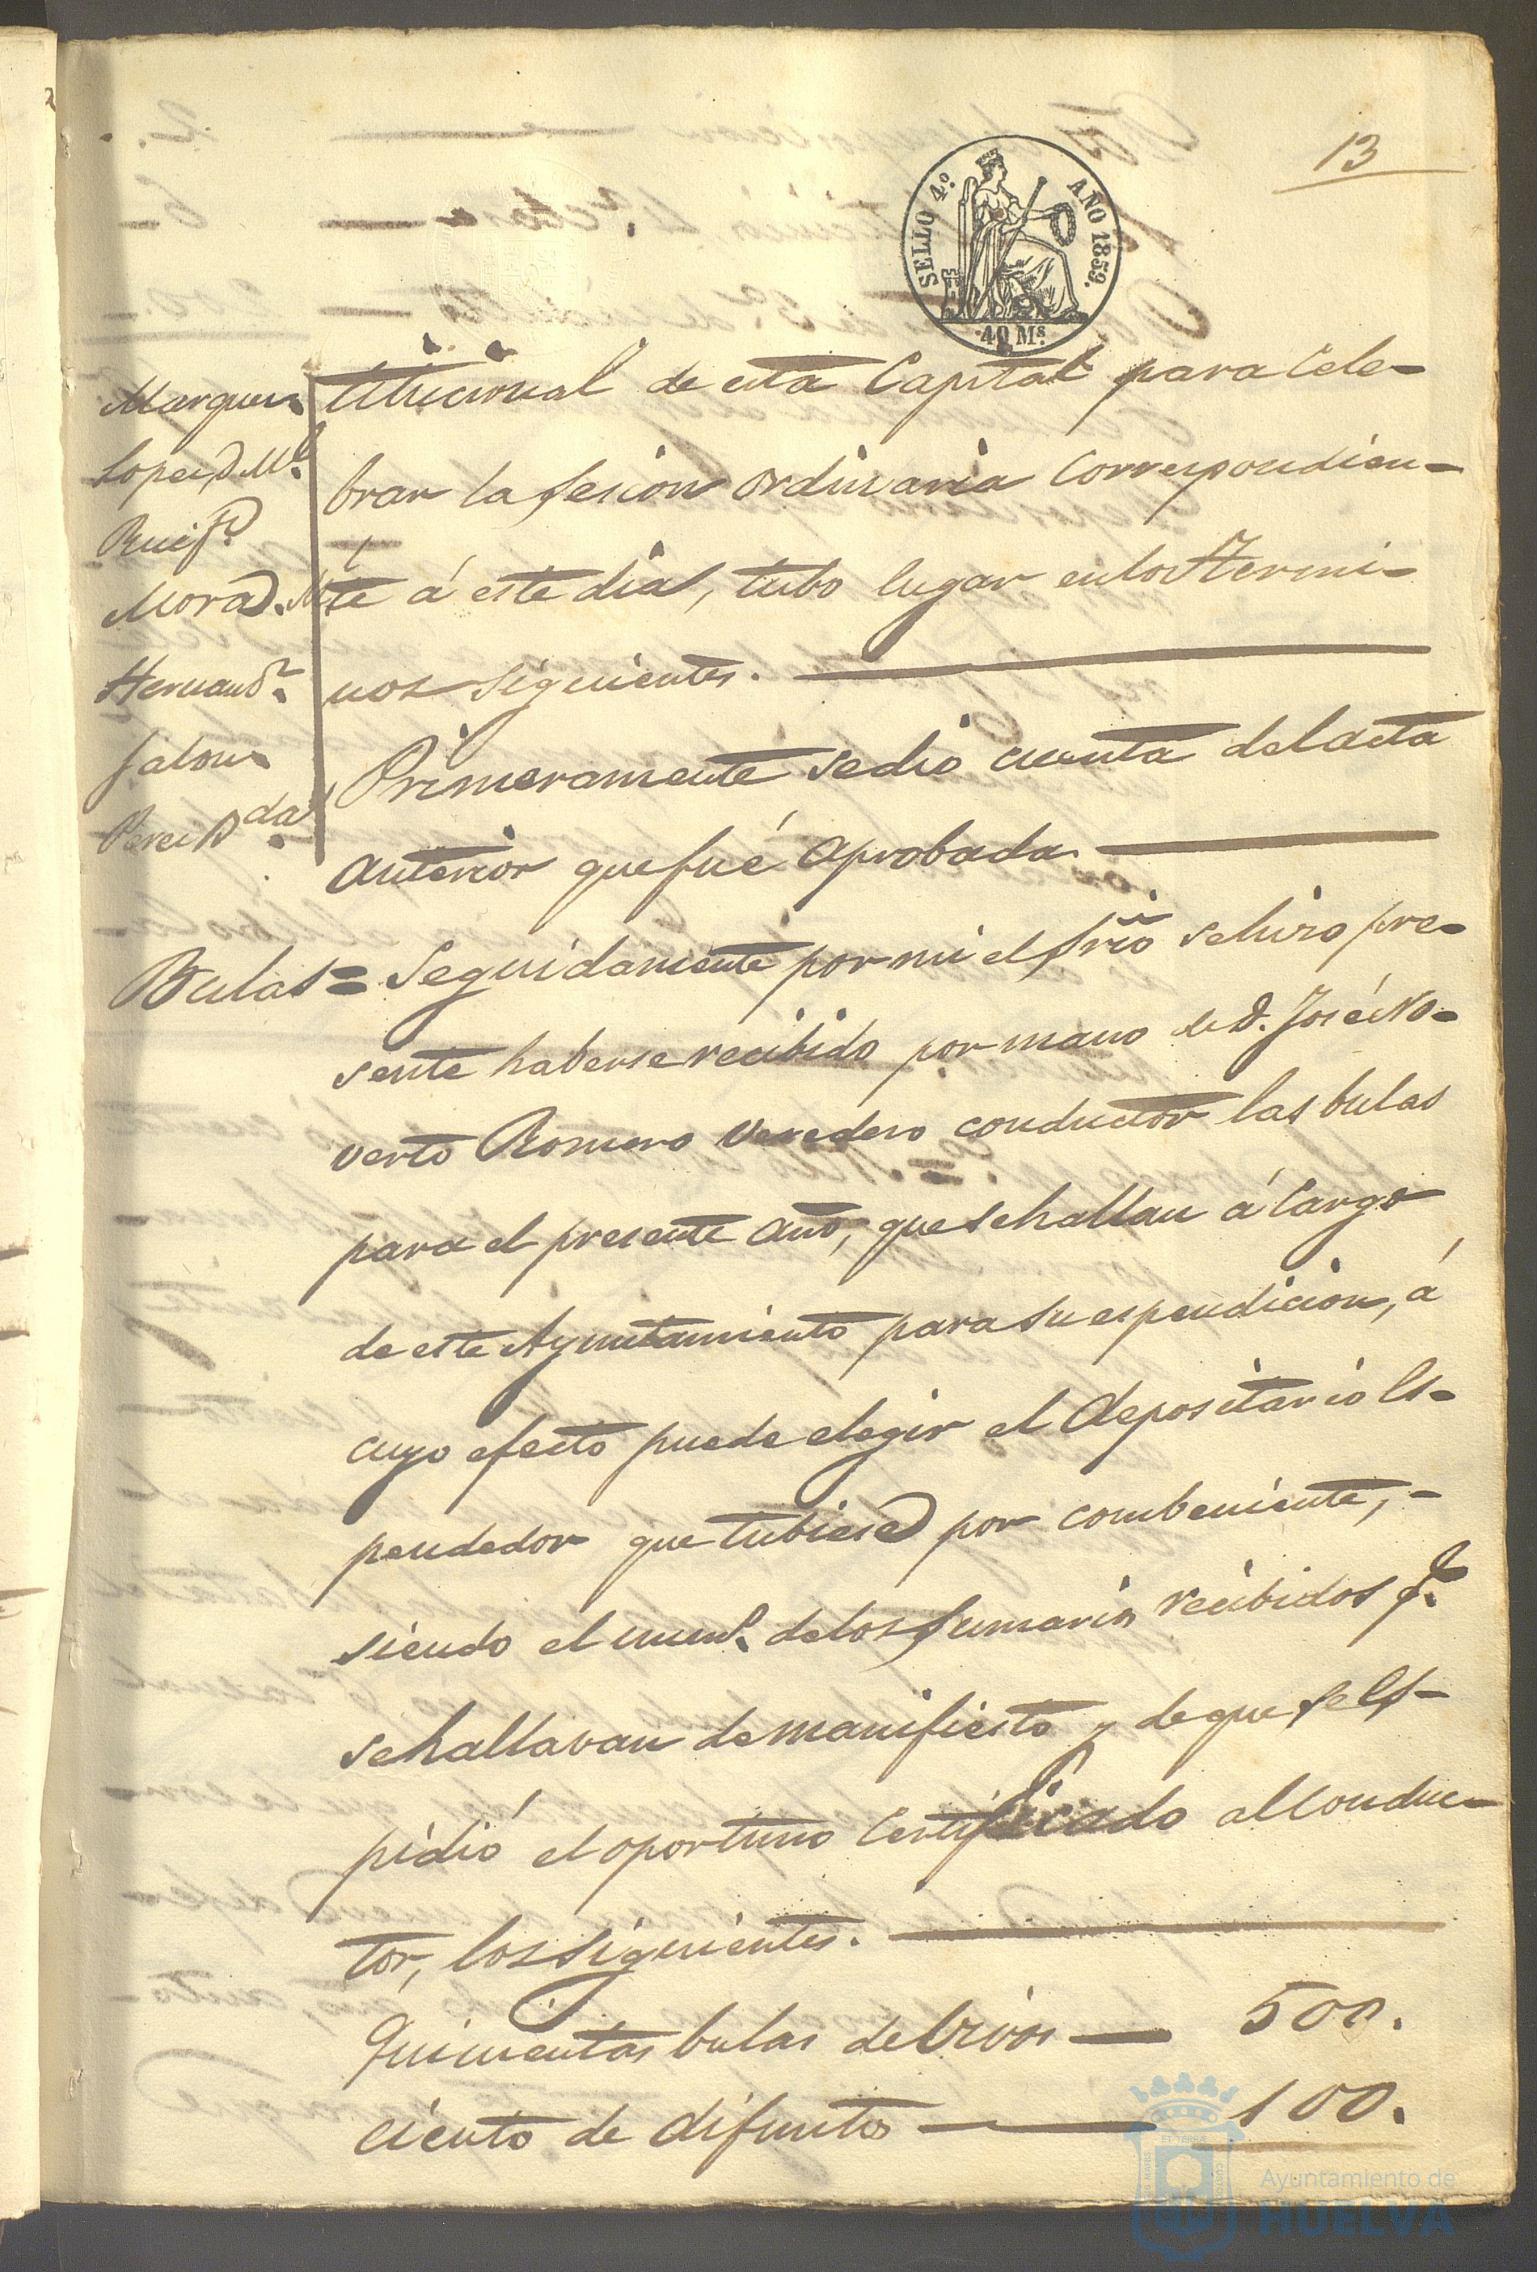 13
SELLO 4.º AÑO 1859.
40 Ms.
Marquez
Lopez, D. Ml.
Ruiz
Mora D.
Hernandz.
Jalon
Perez D.
titucional de esta Capital para Cele-
brar la sesion ordinaria correspondien-
te á este dia, tubo lugar en los termi-
nos siguientes.
Primeramente se dió cuenta del acta
anterior que fué aprobada
Bulas = Seguidamente por mi el Srio se hizo pre-
sente haberse recibido por mano de D. José No-
verto Romero Veredero conductor las bulas
para el presente año, que se hallan á cargo
de este Ayuntamiento para su espendicion, á
cuyo efecto puede elegir el depositario Es-
pendedor que tubiese por combeniente,-
siendo el num.º de los Sumarios recibidos q.e
se hallavan de manifiesto y de que se es-
pidió el oportuno certificado al conduc-
tor, los siguientes.
Quinientas bulas de Vivos — 500.
ciento de difuntos — 100.
Ayuntamiento de
HUELVA